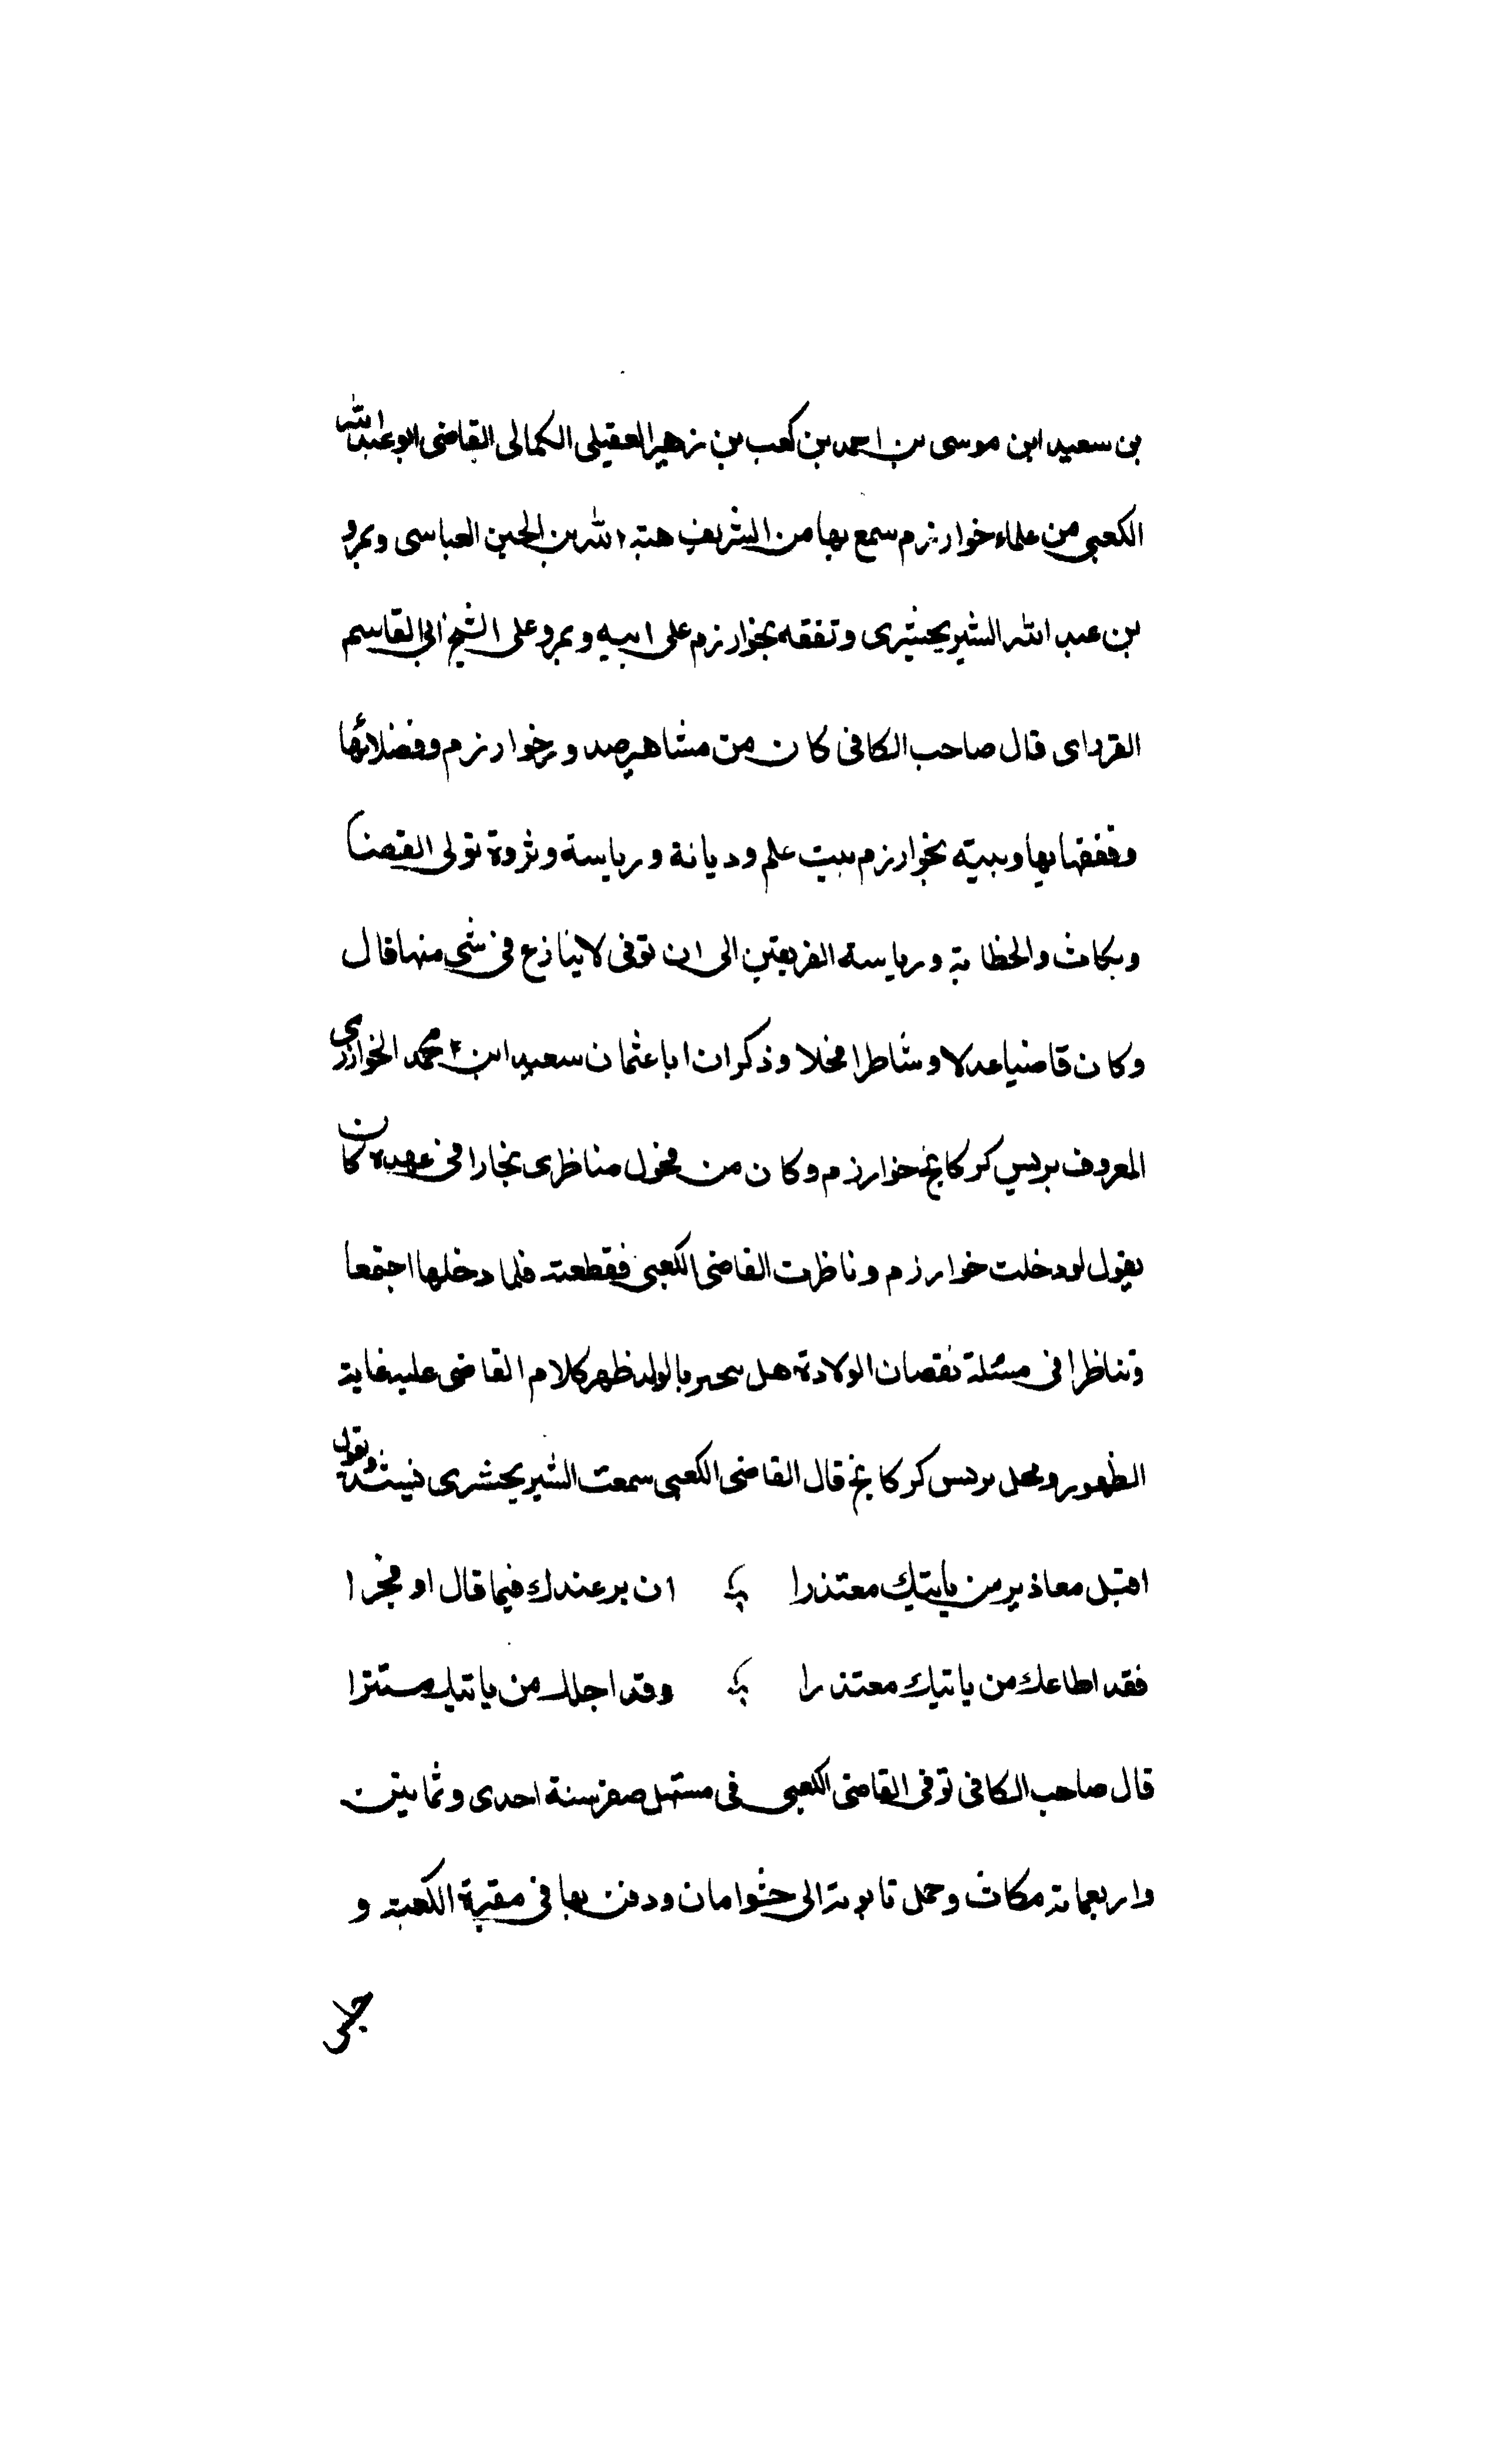 بن سعيد ابن موسى بن احمد بن كعب بن زهير العقيلى الكمالى القاضى ابو عبد الله
الكعبى من علماء خوارزم سمع بها من الشريف هبة الله بن الحسن العباسى وبمرو
بن عبد الله الشيرنحشيرى وتفقه بخوارزم على ابيه وبمرو على الشيخ ابى القاسم
القرداى قال صاحب الكافى كان من مشاهير صدور خوارزم وفضلائها
وفقهائها وبيته بخوارزم بيت علم وديانة ورياسة وثروة تولى القضا
وبكاث والخطابة ورياسة الفريقين الى ان توفى لا ينازع فى شى منها قال
وكان قاضيا عدلا وشاطرا مخلا وذكر ان ابا عثمان سعيد ابن محمد الخوارزمى
المعروف بريس كركانج خوارزم وكان من فحول مناظرى بخارا فى عهده كان
يقول لو دخلت خوارزم وناظرت القاضى الكعبى فقطعته فلما دخلها اجتمعا
وتناظرا فى مسئلة نقصان الولادة هل يجبر بالولد ظهر كلام القاضى عليه غاية
الظهور وخجل بريس كركانج قال القاضى الكعبى سمعت الشيرنحشرى ينيشد ويقول
اقبل معاذير من ياتيك معتذرا ان بر عندك فيما قال او فجرا
فقد اطاعك من ياتيك معتذرا وقد اجلك من ياتيك مستترا
قال صاحب الكافى توفى القاضى الكعبى فى مستهل صفر سنة احدى وثمانين
واربعماية بكاث وحمل تابوته الى خشوامان ودفن بها فى مقبرة الكعبية و